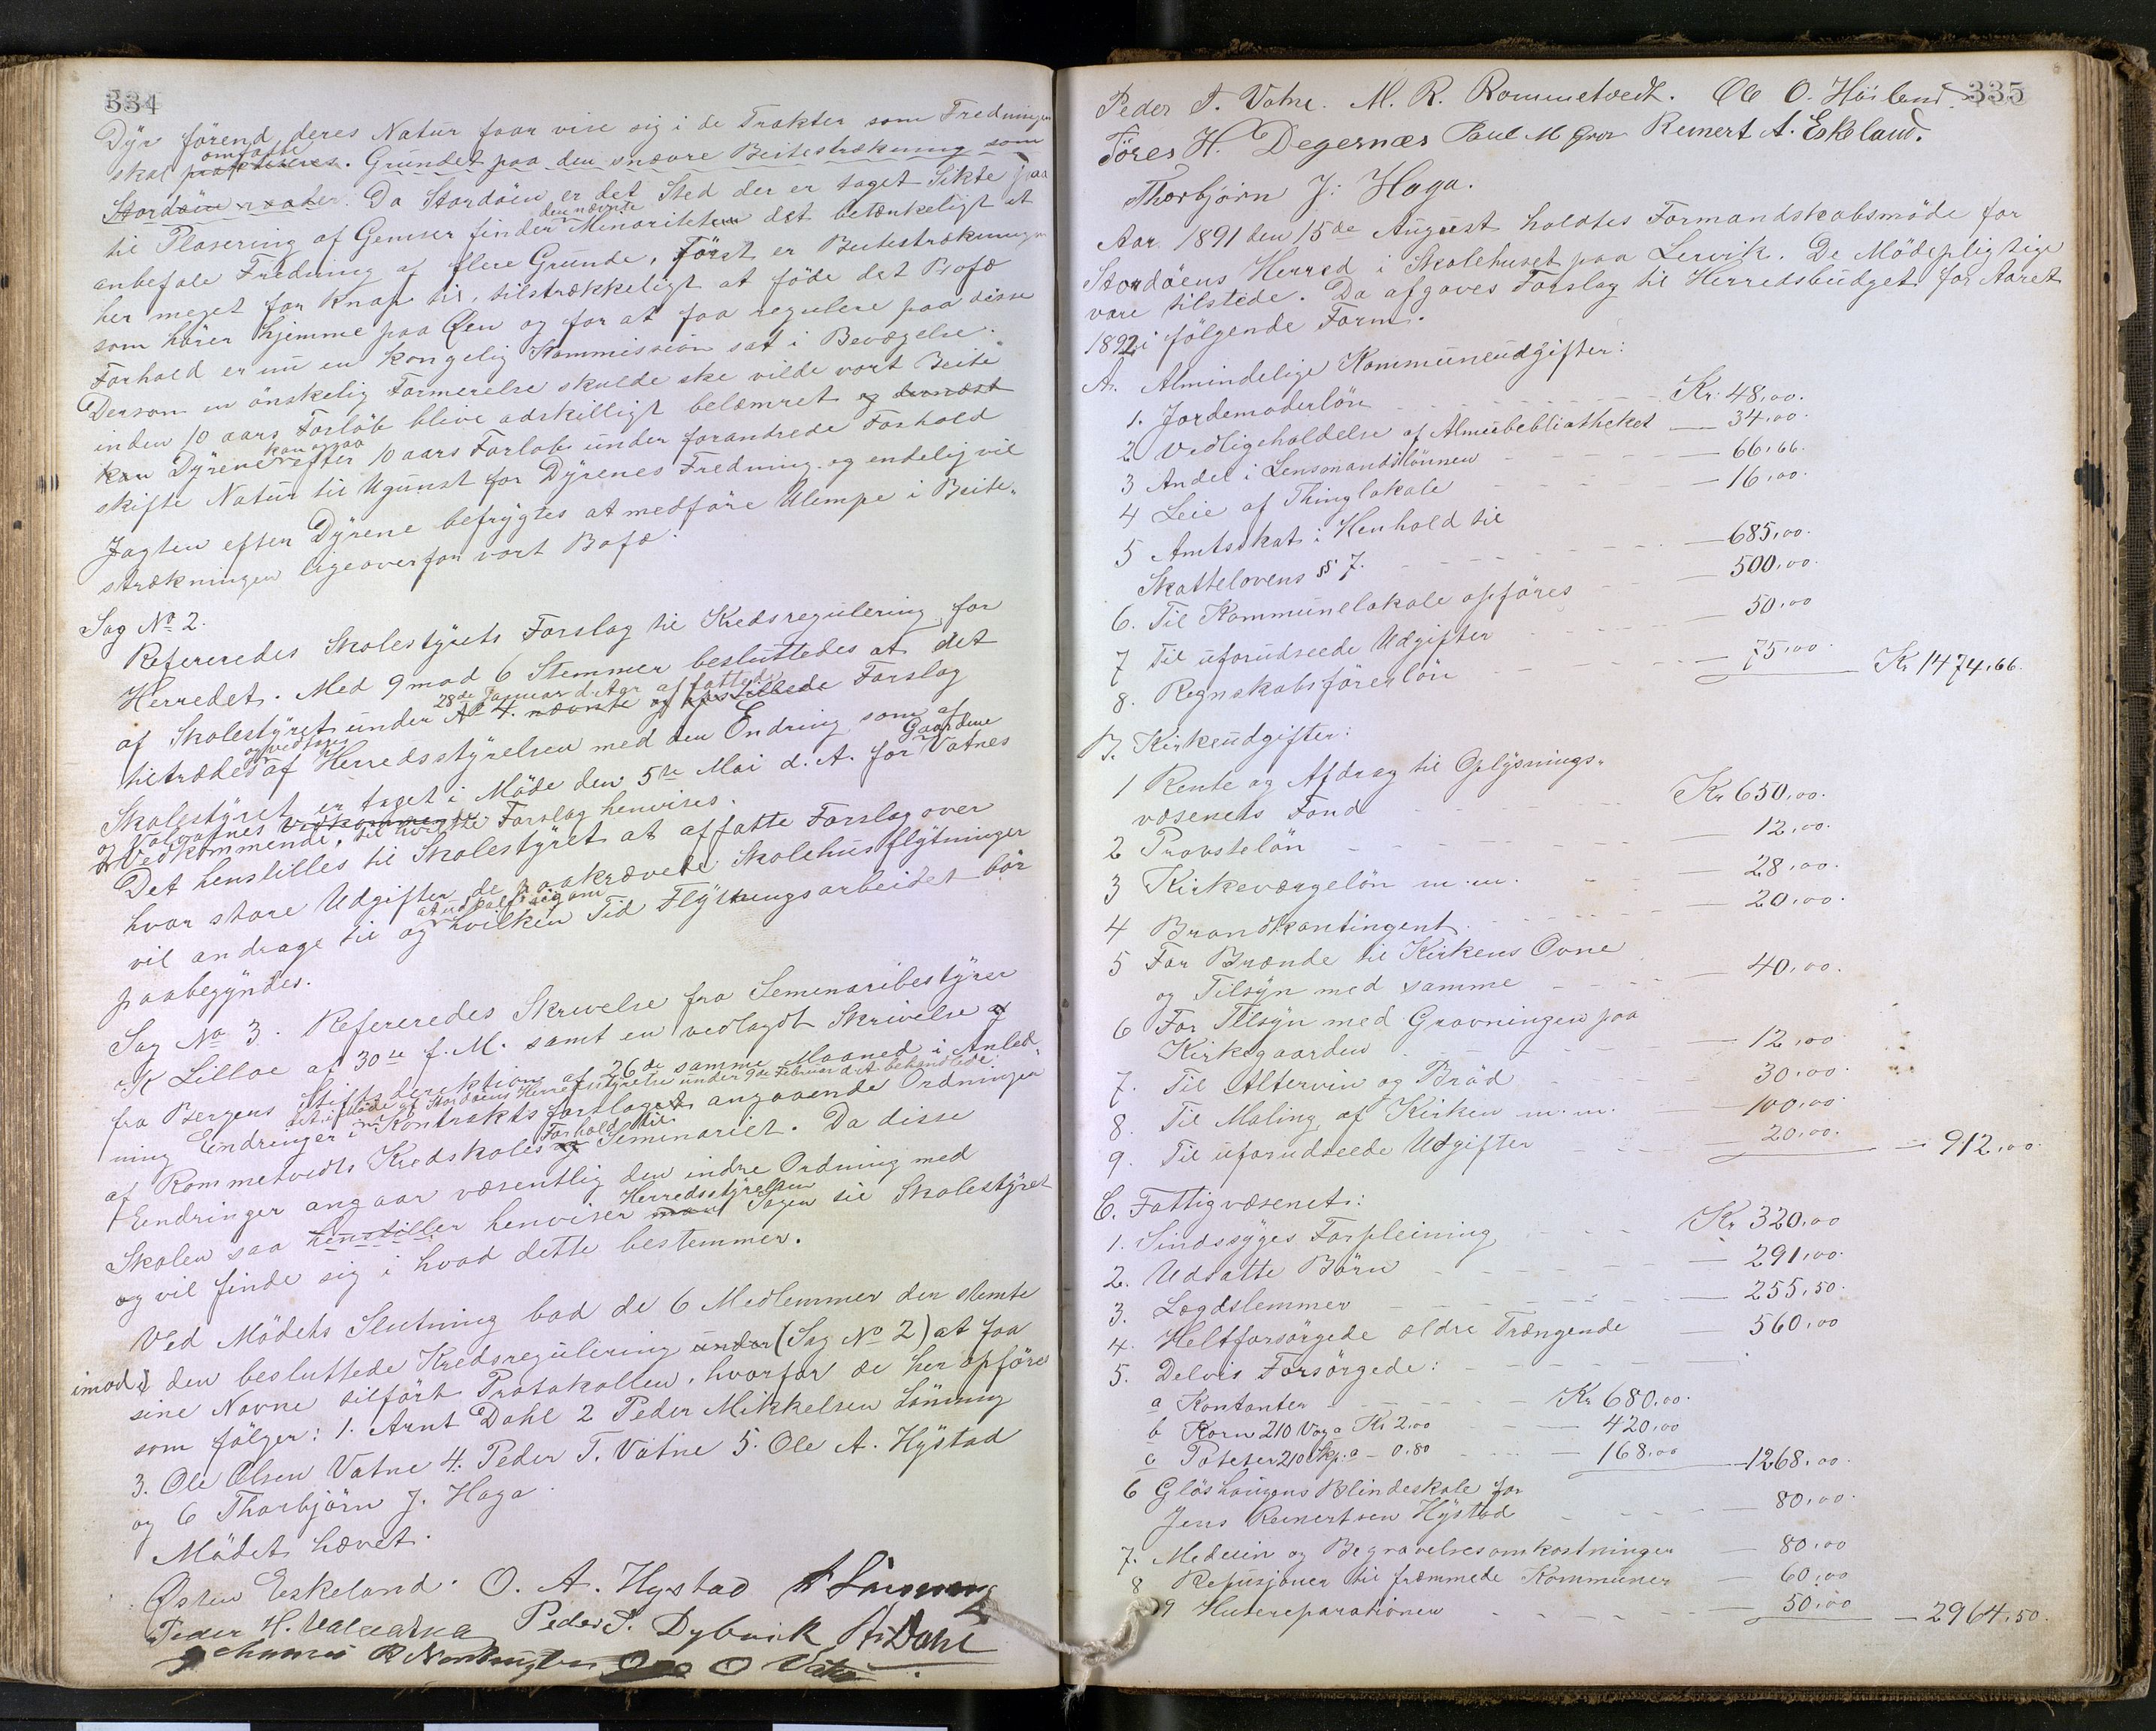 334
Dyr förend deres Natur faar vise sig i de Trakter som Fredningen
omfatte
skal praktiseres. Grundet paa den snævre Beitestrækning som
Stordöen raader. Da Stordöen er det Sted der er taget Sikte paa
til Plasering af Gemser finder den nævnte Minoriteten det betænkeligt at
anbefale Fredning af flere Grunde, först er Beitestrækningen
her meget for Knap til, tilstrækkeligt at föde det Bofæ
som hörer hjemme paa Öen og for at faa regulere paa disse
Forhold er nu en Kongelig Kommission sat i Bevægelse.
Dersom en önskelig Formerelse skulde ske vilde vort Beite
inden 10 aars Forlöb blive adskilligt belæmret og dernæst
kan Dyrene kan ogsaa efter 10 aars Forlöb under forandrede Forhold
skifte Natur til Ugunst for Dyrenes Fredning og endelig vil
Jagten efter Dyrene befrygtes at medföre Ulempe i Beite-
strækningen ligeoverfor vort Bofæ.
Sag No 2.
Refereredes Skolestyrets Forslag til Kredsregulering for
Herredet. Med 9 mod 6 Stemmer besluttedes at det
28de Januar d. Aar affattede
af Skolestyret under No 4. nævnte og opstillede Forslag
og vedtages
tiltrædes af Herredsstyrelsen med den Endring som af
Gaardene
Skolestyret er taget i Möde den 5te Mai d. A. for Vatnes
og Valvatnes Vedkommende
Vedkommende, til hvilke Forslag henvises.
Det henstilles til Skolestyret at affatte Forslag over
hvor store Udgifter de paakrævede Skolehusflytninger
at udtale sig om
vil andrage til og hvilken Tid Flytningsarbeidet bör
paabegyndes.
Sag No 3. Refereredes Skrivelse fra Seminaribestyrer
K Lilloe af 30te f. M. samt en vedlagdt Skrivelse af
fra Bergens Stiftsdirektion af 26de samme Maaned i Anled-
det i Möde af Stordöens Herredsstyrelse under 9de Februar d. A. behandlede
ning Eendringer i Kontraktsforslaget angaaende Ordningen
Forhold til
af Rommetvedts Kredskoles og Seminariet. Da disse
Eendringer angaar væsentlig den indre Ordning med
Herredsstyrelsen
Skolen saa henstiller henviser man Sagen til Skolestyret
og vil finde sig i hvad dette bestemmer.
Ved Mödets Slutning bad de 6 Medlemmer der stemte
imod den besluttede Kredsregulering under (Sag No 2) at faa
sine Navne tilfört Protokollen, hvorfor de her opföres
som fölger: 1. Arnt Dahl 2 Peder Mikkelsen Lönning
3. Ole Olsen Vatne 4. Peder T. Vatne 5. Ole A. Hystad
og 6 Thorbjörn J. Haga.
Mödet hævet.
Östen Eskeland. O. A. Hystad
Peder H. Valvatna Peder T. Dybvik A. Dahl
Ole O Vatne
335
Peder T. Vatne. M. R. Rommetvedt. Ole O. Höiland.
Töres H. Degernæs Paul M Reinert A. Eskeland.
Thorbjörn J: Haga.
Aar 1891 den 15de August holdtes Formandskabsmöde for
Stordöens Herred i Skolehuset paa Lervik. De Mödepligtige
vare tilstede. Da afgaves Forslag til Herredsbudget for Aaret
1892 i fölgende Form.
A. Almindelige Kommuneudgifter:
1. Jordemoderlön Kr: 48,00.
2 Vedligeholdelse af Almuebebliotheket 34,00.
3 Andel i Lensmandslönnen 66,66.
4 Leie af Thinglokale 16,00.
5 Amtsskat i Henhold til
Skattelovens §§ 7. 685,00.
6. Til Kommunelokale opföres 500,00.
7 Til uforudseede Udgifter 50,00
8. Regnskabsförerlön 75,00. Kr 1474,66.
B. Kirkeudgifter:
1 Rente og Afdrag til Oplysnings-
væsenets Fond Kr 650,00.
2 Provstelön 12,00.
3 Kirkeværgelön m. m. 28,00.
4 Brandkontingent 20,00.
5 For Brænde til Kirkens Ovne
og Tilsyn med samme 40,00.
6 For Tilsyn med Gravningen paa
Kirkegaarden 12,00
7. Til Altervin og Bröd 30,00.
8. Til Maling af Kirken m. m. 100,00.
9. Til uforudseede Udgifter 20,00. 912,00.
C. Fattigvæsenet:
1. Sindssyges Forpleining Kr 320,00
2. Udsatte Börn 291,00.
3. Lægdslemmer 255,50.
4. Heltforsörgede ældre Trængende 560,00
5. Delvis Forsörgede:
a Kontanter Kr 680,00.
b Korn 210 Vog a Kr 2,00 420,00
c Poteter 210 Skp. a 0.80 168,00 1268,00.
6 Glöshaugens Blindeskole for
Jens Reinertsen Hystad 80,00.
7. Medicin og Begravelsesomkostninger 80,00
8 Refusjoner til fræmmede Kommuner 60,00
9 Husereparationer 50,00 2964,50.